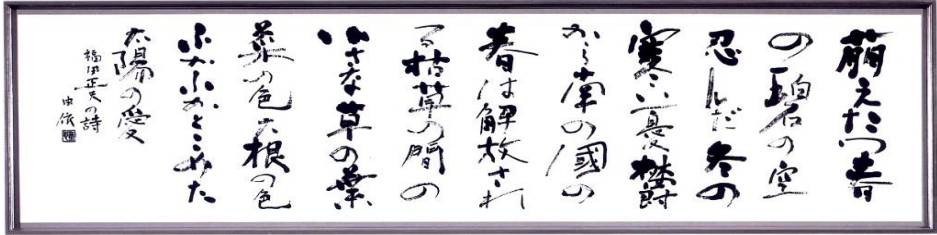 萌えたつ春
の碧の空
忍んだ冬の
寒い憂欝
から南の國の
春は解放され
る枯草の間の
小さな草の葉
菜の色大根の色
ふかふかとこめた
太陽の愛
福田正夫の詩